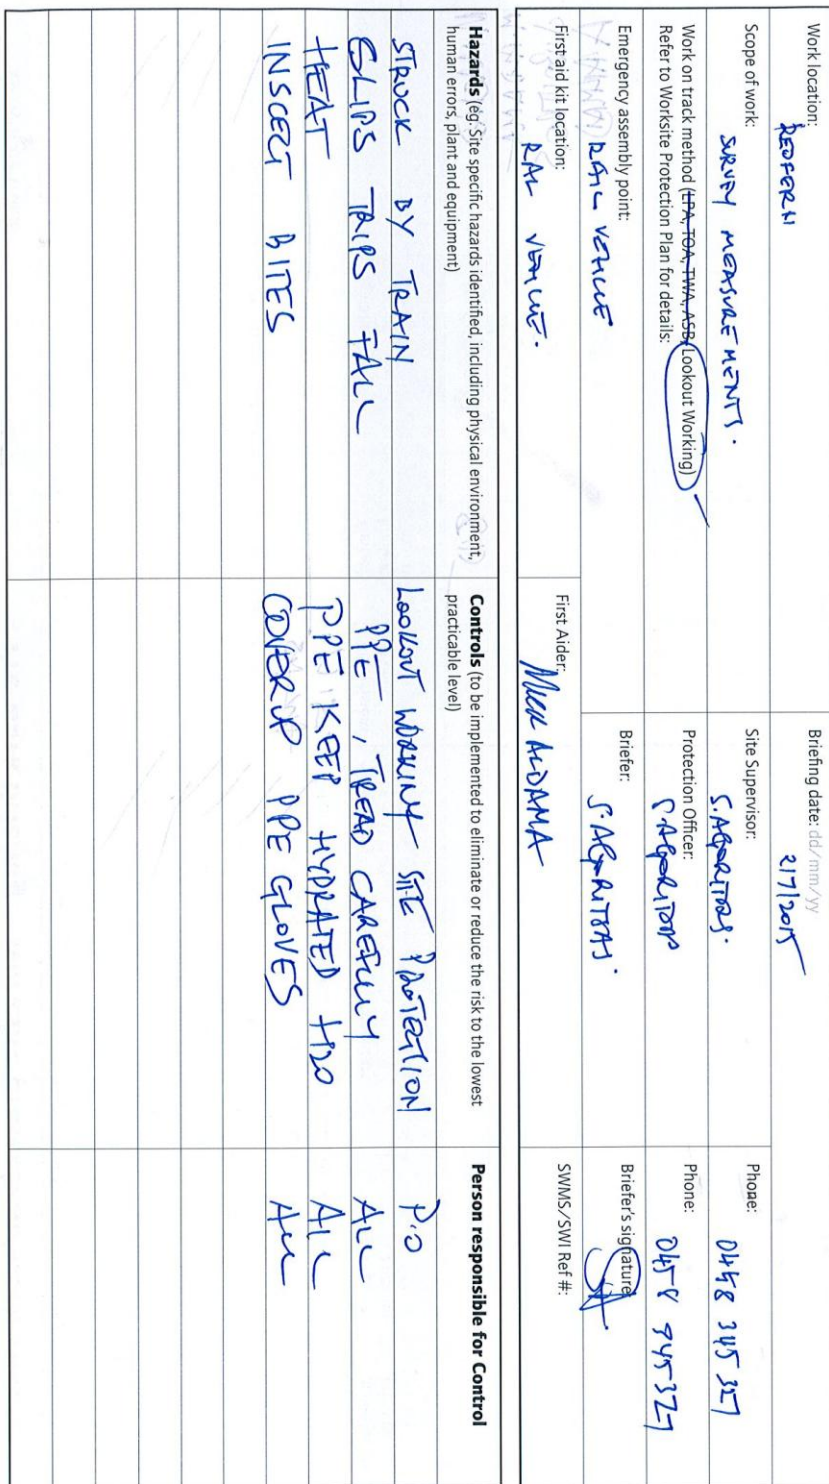 Work location:
REDFERN
Briefing date: dd/mm/yy
2/7/2015
Scope of work:
SURVEY MEASUREMENTS.
Site Supervisor:
Phone:
Work on track method (LPA, TOA, TWA, ASB, Lookout Working)
Refer to Worksite Protection Plan for details:
Protection Officer:
Phone:
0458 945 327
Emergency assembly point:
RAIL VEHICLE
Briefer:
Briefer's signature
First aid kit location:
RAL VEHICLE.
First Aider:
MICK ALDAMA
SWMS/SWI Ref #:
Hazards (eg. Site specific hazards identified, including physical environment,
human errors, plant and equipment)
Controls (to be implemented to eliminate or reduce the risk to the lowest
practicable level)
Person responsible for Control
STRUCK BY TRAIN
LOOKOUT WORKING SITE PROTECTION
P.O
SLIPS TRIPS FALL
PPE, TREAD CAREFULLY
ALL
HEAT
PPE KEEP HYDRATED H20
ALL
INSCECT BITES
COVER UP PPE GLOVES
ALL